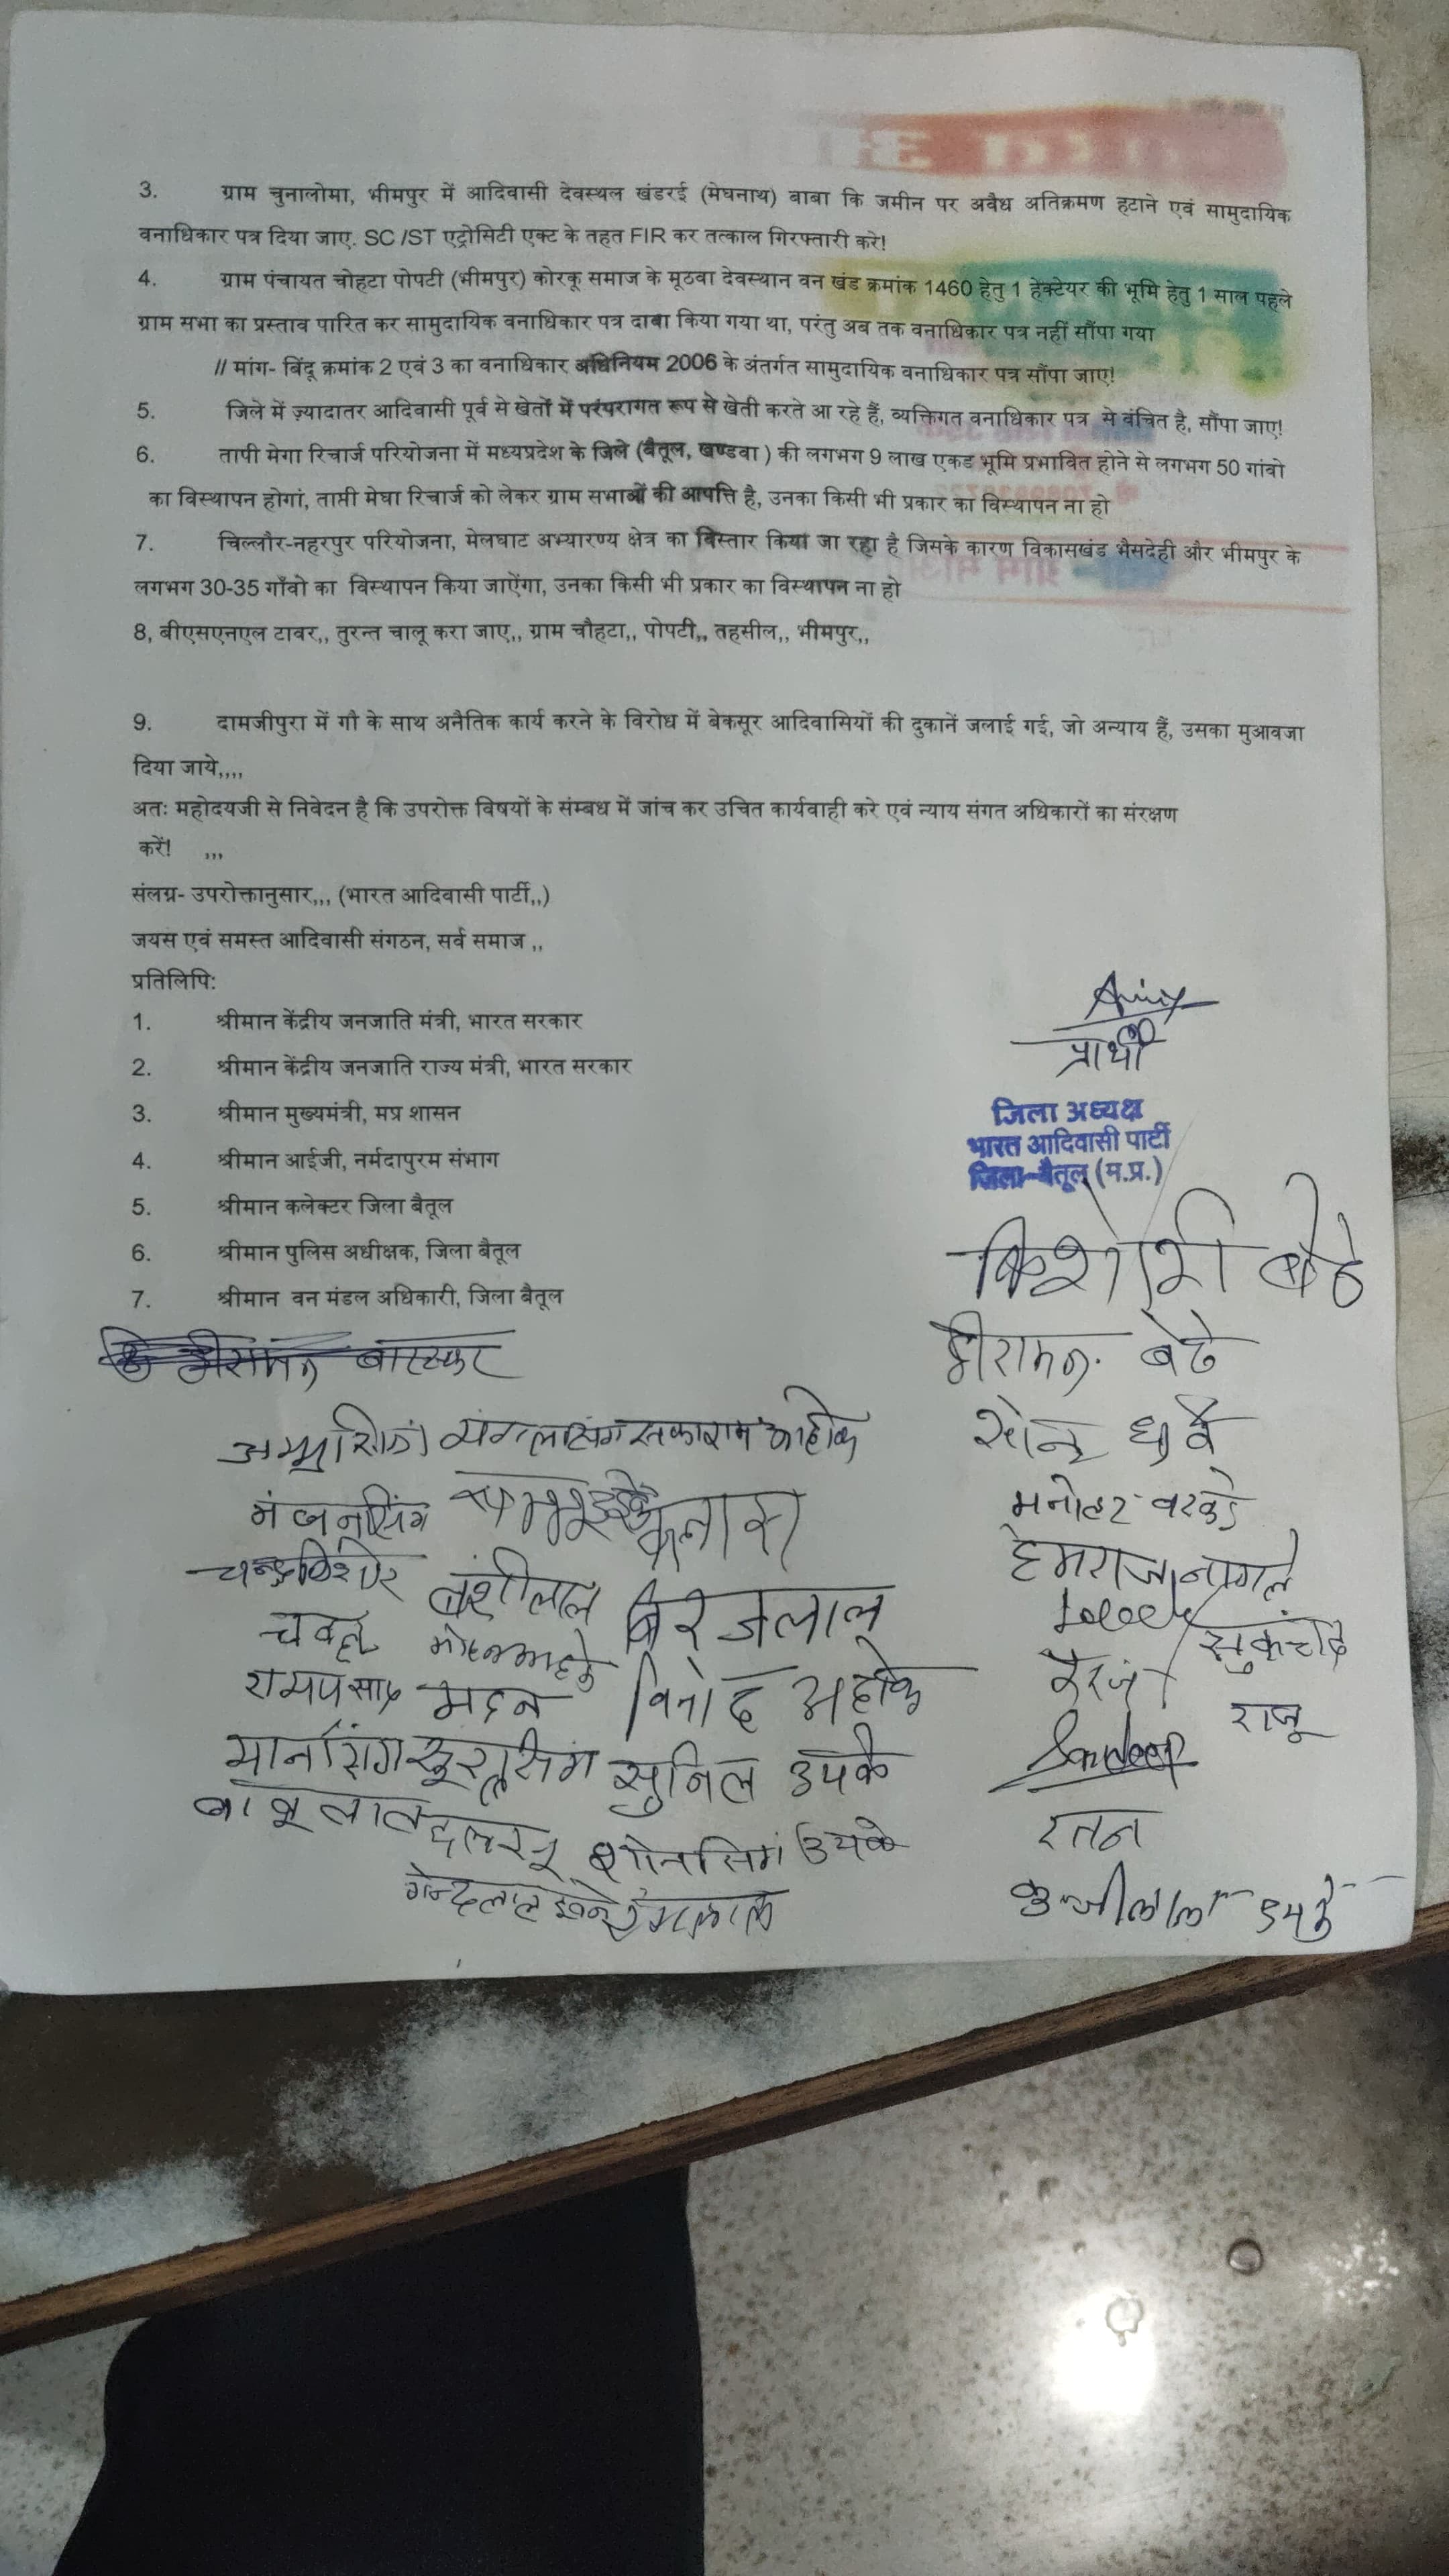 3. ग्राम चुनालोमा, भीमपुर में आदिवासी देवस्थल खंडरई (मेघनाथ) बाबा कि जमीन पर अवैध अतिक्रमण हटाने एवं सामुदायिक
वनाधिकार पत्र दिया जाए. SC /ST एट्रोसिटी एक्ट के तहत FIR कर तत्काल गिरफ्तारी करे!
4. ग्राम पंचायत चोहटा पोपटी (भीमपुर) कोरकू समाज के मूठवा देवस्थान वन खंड क्रमांक 1460 हेतु 1 हेक्टेयर की भूमि हेतु 1 साल पहले
ग्राम सभा का प्रस्ताव पारित कर सामुदायिक वनाधिकार पत्र दावा किया गया था, परंतु अब तक वनाधिकार पत्र नहीं सौंपा गया
// मांग- बिंदू क्रमांक 2 एवं 3 का वनाधिकार अधिनियम 2006 के अंतर्गत सामुदायिक वनाधिकार पत्र सौंपा जाए!
5. जिले में ज़्यादातर आदिवासी पूर्व से खेतों में परंपरागत रूप से खेती करते आ रहे हैं, व्यक्तिगत वनाधिकार पत्र से वंचित है, सौंपा जाए!
6. तापी मेगा रिचार्ज परियोजना में मध्यप्रदेश के जिले (बैतूल, खण्डवा ) की लगभग 9 लाख एकड भूमि प्रभावित होने से लगभग 50 गांवो
का विस्थापन होगां, ताप्ती मेघा रिचार्ज को लेकर ग्राम सभाओं की आपत्ति है, उनका किसी भी प्रकार का विस्थापन ना हो
7. चिल्लौर-नहरपुर परियोजना, मेलघाट अभ्यारण्य क्षेत्र का विस्तार किया जा रहा है जिसके कारण विकासखंड भैसदेही और भीमपुर के
लगभग 30-35 गाँवो का विस्थापन किया जाऐंगा, उनका किसी भी प्रकार का विस्थापन ना हो
8, बीएसएनएल टावर,, तुरन्त चालू करा जाए,, ग्राम चौहटा,, पोपटी,, तहसील,, भीमपुर,,
9. दामजीपुरा में गौ के साथ अनैतिक कार्य करने के विरोध में बेकसूर आदिवासियों की दुकानें जलाई गई, जो अन्याय हैं, उसका मुआवजा
दिया जाये,,,,
अतः महोदयजी से निवेदन है कि उपरोक्त विषयों के संम्बध में जांच कर उचित कार्यवाही करे एवं न्याय संगत अधिकारों का संरक्षण
करें! ,,,
संलग्न- उपरोक्तानुसार,,, (भारत आदिवासी पार्टी,,)
जयस एवं समस्त आदिवासी संगठन, सर्व समाज ,,
प्रतिलिपि:
1. श्रीमान केंद्रीय जनजाति मंत्री, भारत सरकार
2. श्रीमान केंद्रीय जनजाति राज्य मंत्री, भारत सरकार
3. श्रीमान मुख्यमंत्री, मप्र शासन
4. श्रीमान आईजी, नर्मदापुरम संभाग
5. श्रीमान कलेक्टर जिला बैतूल
6. श्रीमान पुलिस अधीक्षक, जिला बैतूल
7. श्रीमान वन मंडल अधिकारी, जिला बैतूल
प्रार्थी
जिला अध्यक्ष
भारत आदिवासी पार्टी
जिला-बैतूल (म.प्र.)
किशोरी
हीरामन
मनोहर वरकडे
हेमराज नागले
सुकचंद
राजू
रतन
कुन्जीलाल
बारस्कर
मंगलसिंग सकाराम
बंशीलाल बिरजलाल
रामप्रसाद मदन विनोद
मानसिंग सुनिल उपके
बाबूलाल
गेन्दलाल